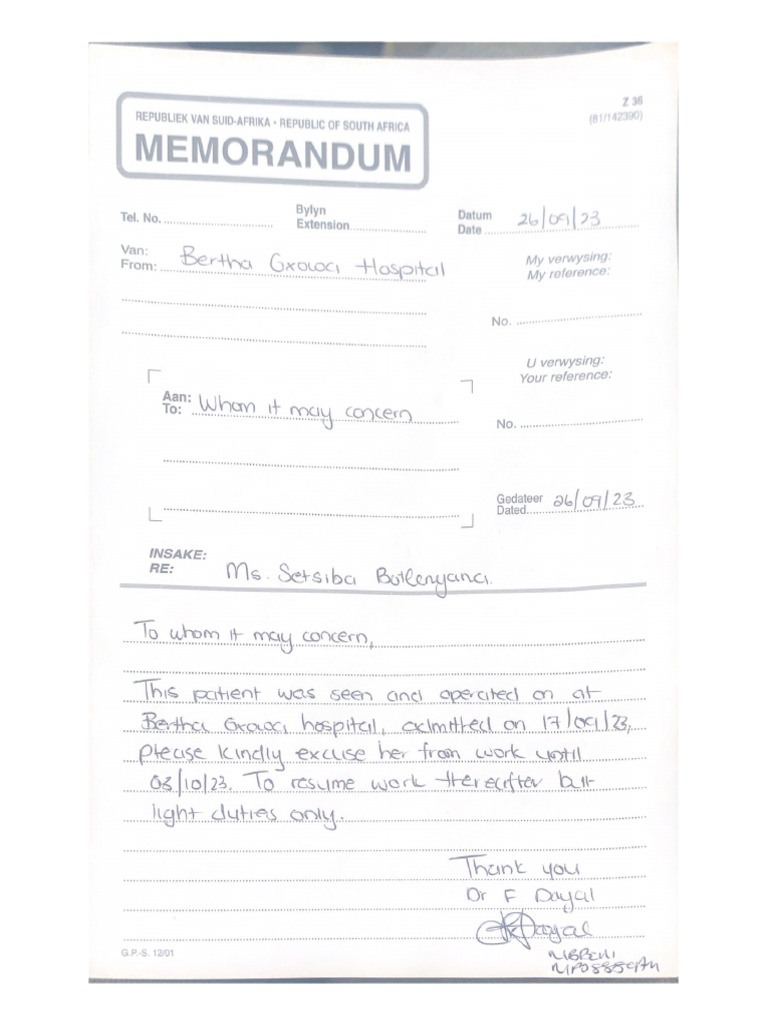 Z 36
(81/142390)
REPUBLIEK VAN SUID-AFRIKA • REPUBLIC OF SOUTH AFRICA
MEMORANDUM
Tel. No.
Bylyn
Extension
Datum
Date 26/09/23
Van:
From: Bertha Gxowa Hospital
My verwysing:
My reference:
No.
U verwysing:
Your reference:
Aan:
To: Whom it may concern
No.
Gedateer
Dated 26/09/23
INSAKE:
RE: Ms. Setsiba
To whom it may concern,
This patient was seen and operated on at
Bertha Gxowa hospital, admitted on 17/09/23,
please kindly excuse her from work until
03/10/23. To resume work thereafter but
light duties only.
Thank you
Dr F Dayal
Dayal
G.P.-S. 12/01